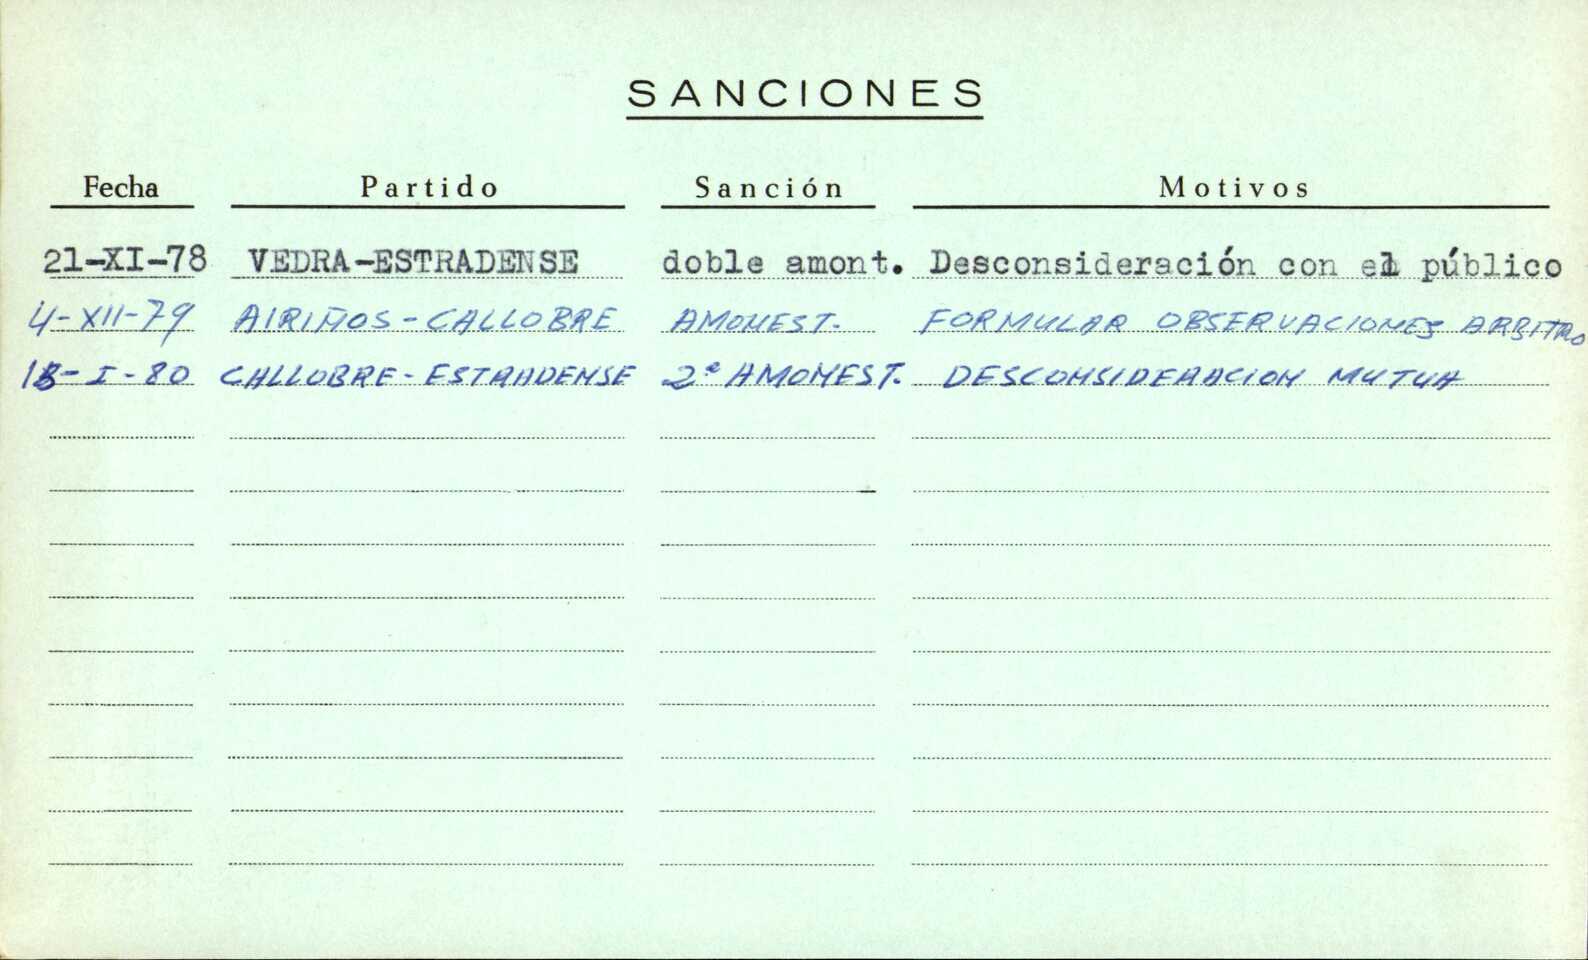 SANCIONES
Fecha Partido Sanción Motivos
21-XI-78 VEDRA-ESTRADENSE doble amont. Desconsideración con el público
4-XII-79 AIRIÑOS-CALLOBRE AMONEST. FORMULAR OBSERVACIONES ARBITRO
15-I-80 CALLOBRE-ESTRADENSE 2ª AMONEST. DESCONSIDERACION MUTUA